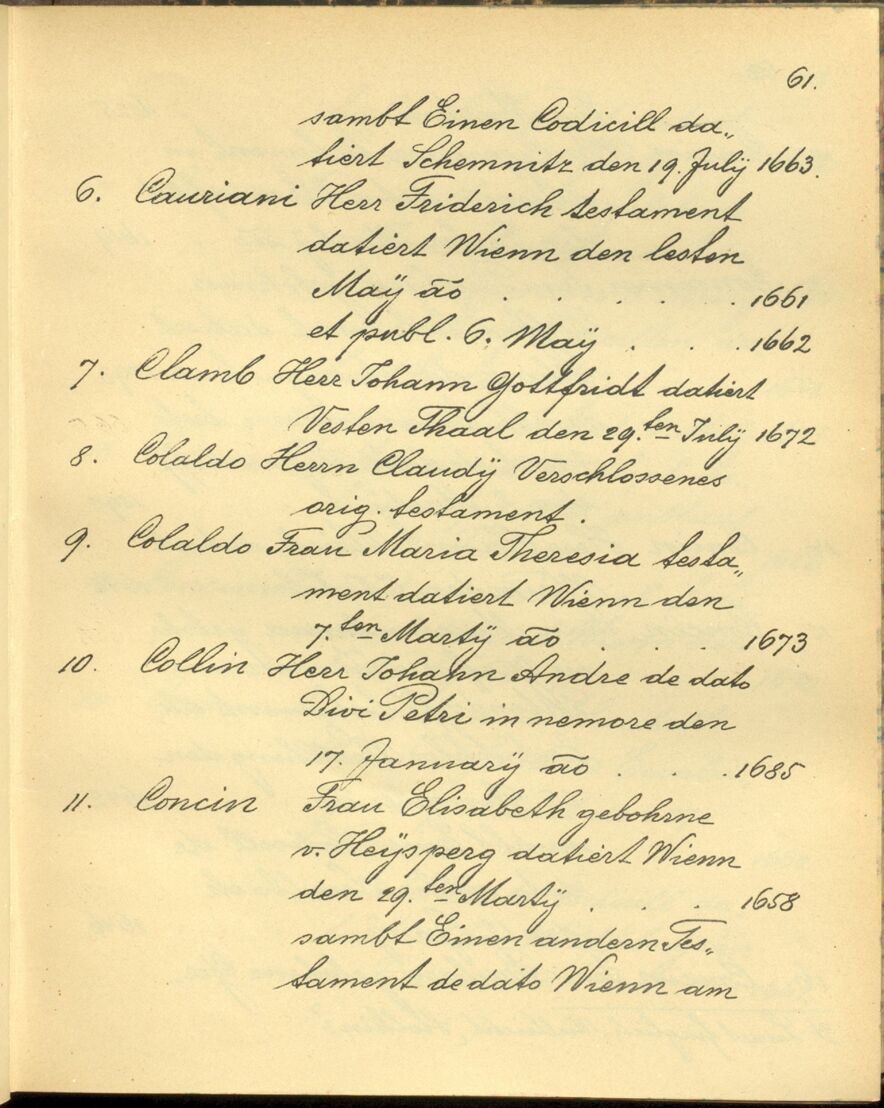 61.
sambt Einen Codicill da„
tiert Schemnitz den 19. Julÿ 1663.
6. Cauriani Herr Friderich testament
datiert Wienn den lesten
Maÿ āo . . . . . . 1661
et publ. 6. Maÿ . . . 1662
7. Clamb Herr Johann Gottfridt datiert
Vesten Thaal den 29.ten Julÿ 1672
8. Colaldo Herrn Claudÿ Verschlossenes
orig. testament.
9. Colaldo Frau Maria Theresia testa„
ment datiert Wienn den
7.ten Martÿ āo . . . . 1673
10. Collin Herr Johann Andre de dato
Divi Petri in nemore den
17. Januarÿ āo . . . 1685
11. Concin Frau Elisabeth gebohrne
v. Heÿsperg datiert Wienn
den 29.ten Martÿ . . . 1658
sambt Einen andern Tes„
tament de dato Wienn am